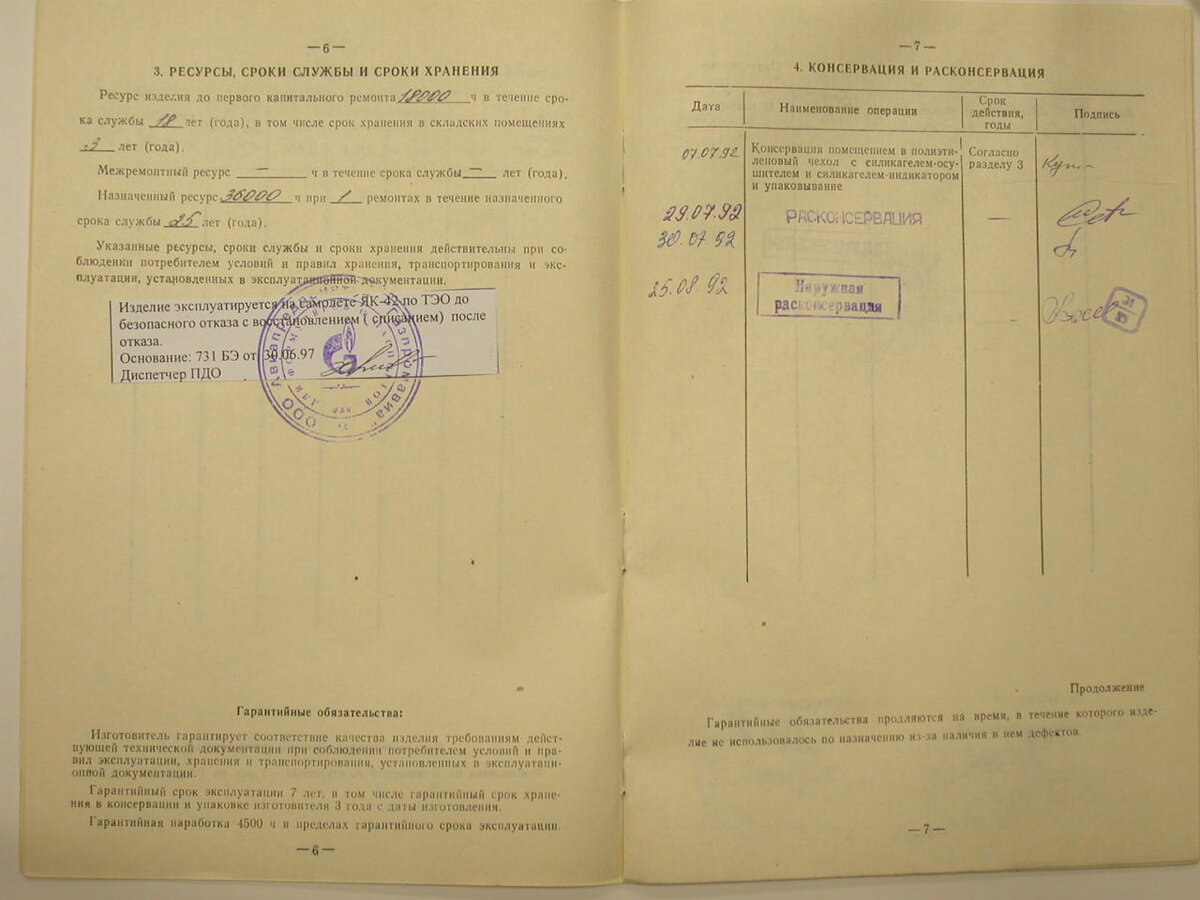 —6—
3. РЕСУРСЫ, СРОКИ СЛУЖБЫ И СРОКИ ХРАНЕНИЯ
Ресурс изделия до первого капитального ремонта 18000 ч в течение сро-
ка службы 18 лет (года), в том числе срок хранения в складских помещениях
3 лет (года).
Межремонтный ресурс — ч в течение срока службы — лет (года).
Назначенный ресурс 36000 ч при 1 ремонтах в течение назначенного
срока службы 25 лет (года).
Указанные ресурсы, сроки службы и сроки хранения действительны при со-
блюдении потребителем условий и правил хранения, транспортирования и экс-
плуатации, установленных в эксплуатационной документации.
Изделие эксплуатируется на самолете ЯК-42 по ТЭО до
безопасного отказа с восстановлением ( списанием) после
отказа.
Основание: 731 БЭ от 30.06.97
Диспетчер ПДО
ООО Авиапре Газпромавиа"
Гарантийные обязательства:
Изготовитель гарантирует соответствие качества изделия требованиям дейст-
вующей технической документации при соблюдении потребителем условий и пра-
вил эксплуатации, хранения и транспортирования, установленных в эксплуатаци-
онной документации.
Гарантийный срок эксплуатации 7 лет, в том числе гарантийный срок хране-
ния в консервации и упаковке изготовителя 3 года с даты изготовления.
Гарантийная наработка 4500 ч в пределах гарантийного срока эксплуатации.
—6—
—7—
4. КОНСЕРВАЦИЯ И РАСКОНСЕРВАЦИЯ
Дата Наименование операции Срок действия, годы Подпись
07.07.92 Консервация помещением в полиэти-
леновый чехол с силикагелем-осу-
шителем и силикагелем-индикатором
и упаковывание
Согласно
разделу 3
29.07.92 РАСКОНСЕРВАЦИЯ —
30.07.92
25.08.92 Наружная
расконсервация
Продолжение
Гарантийные обязательства продляются на время, в течение которого изде-
лие не использовалось по назначению из-за наличия в нем дефектов.
—7—